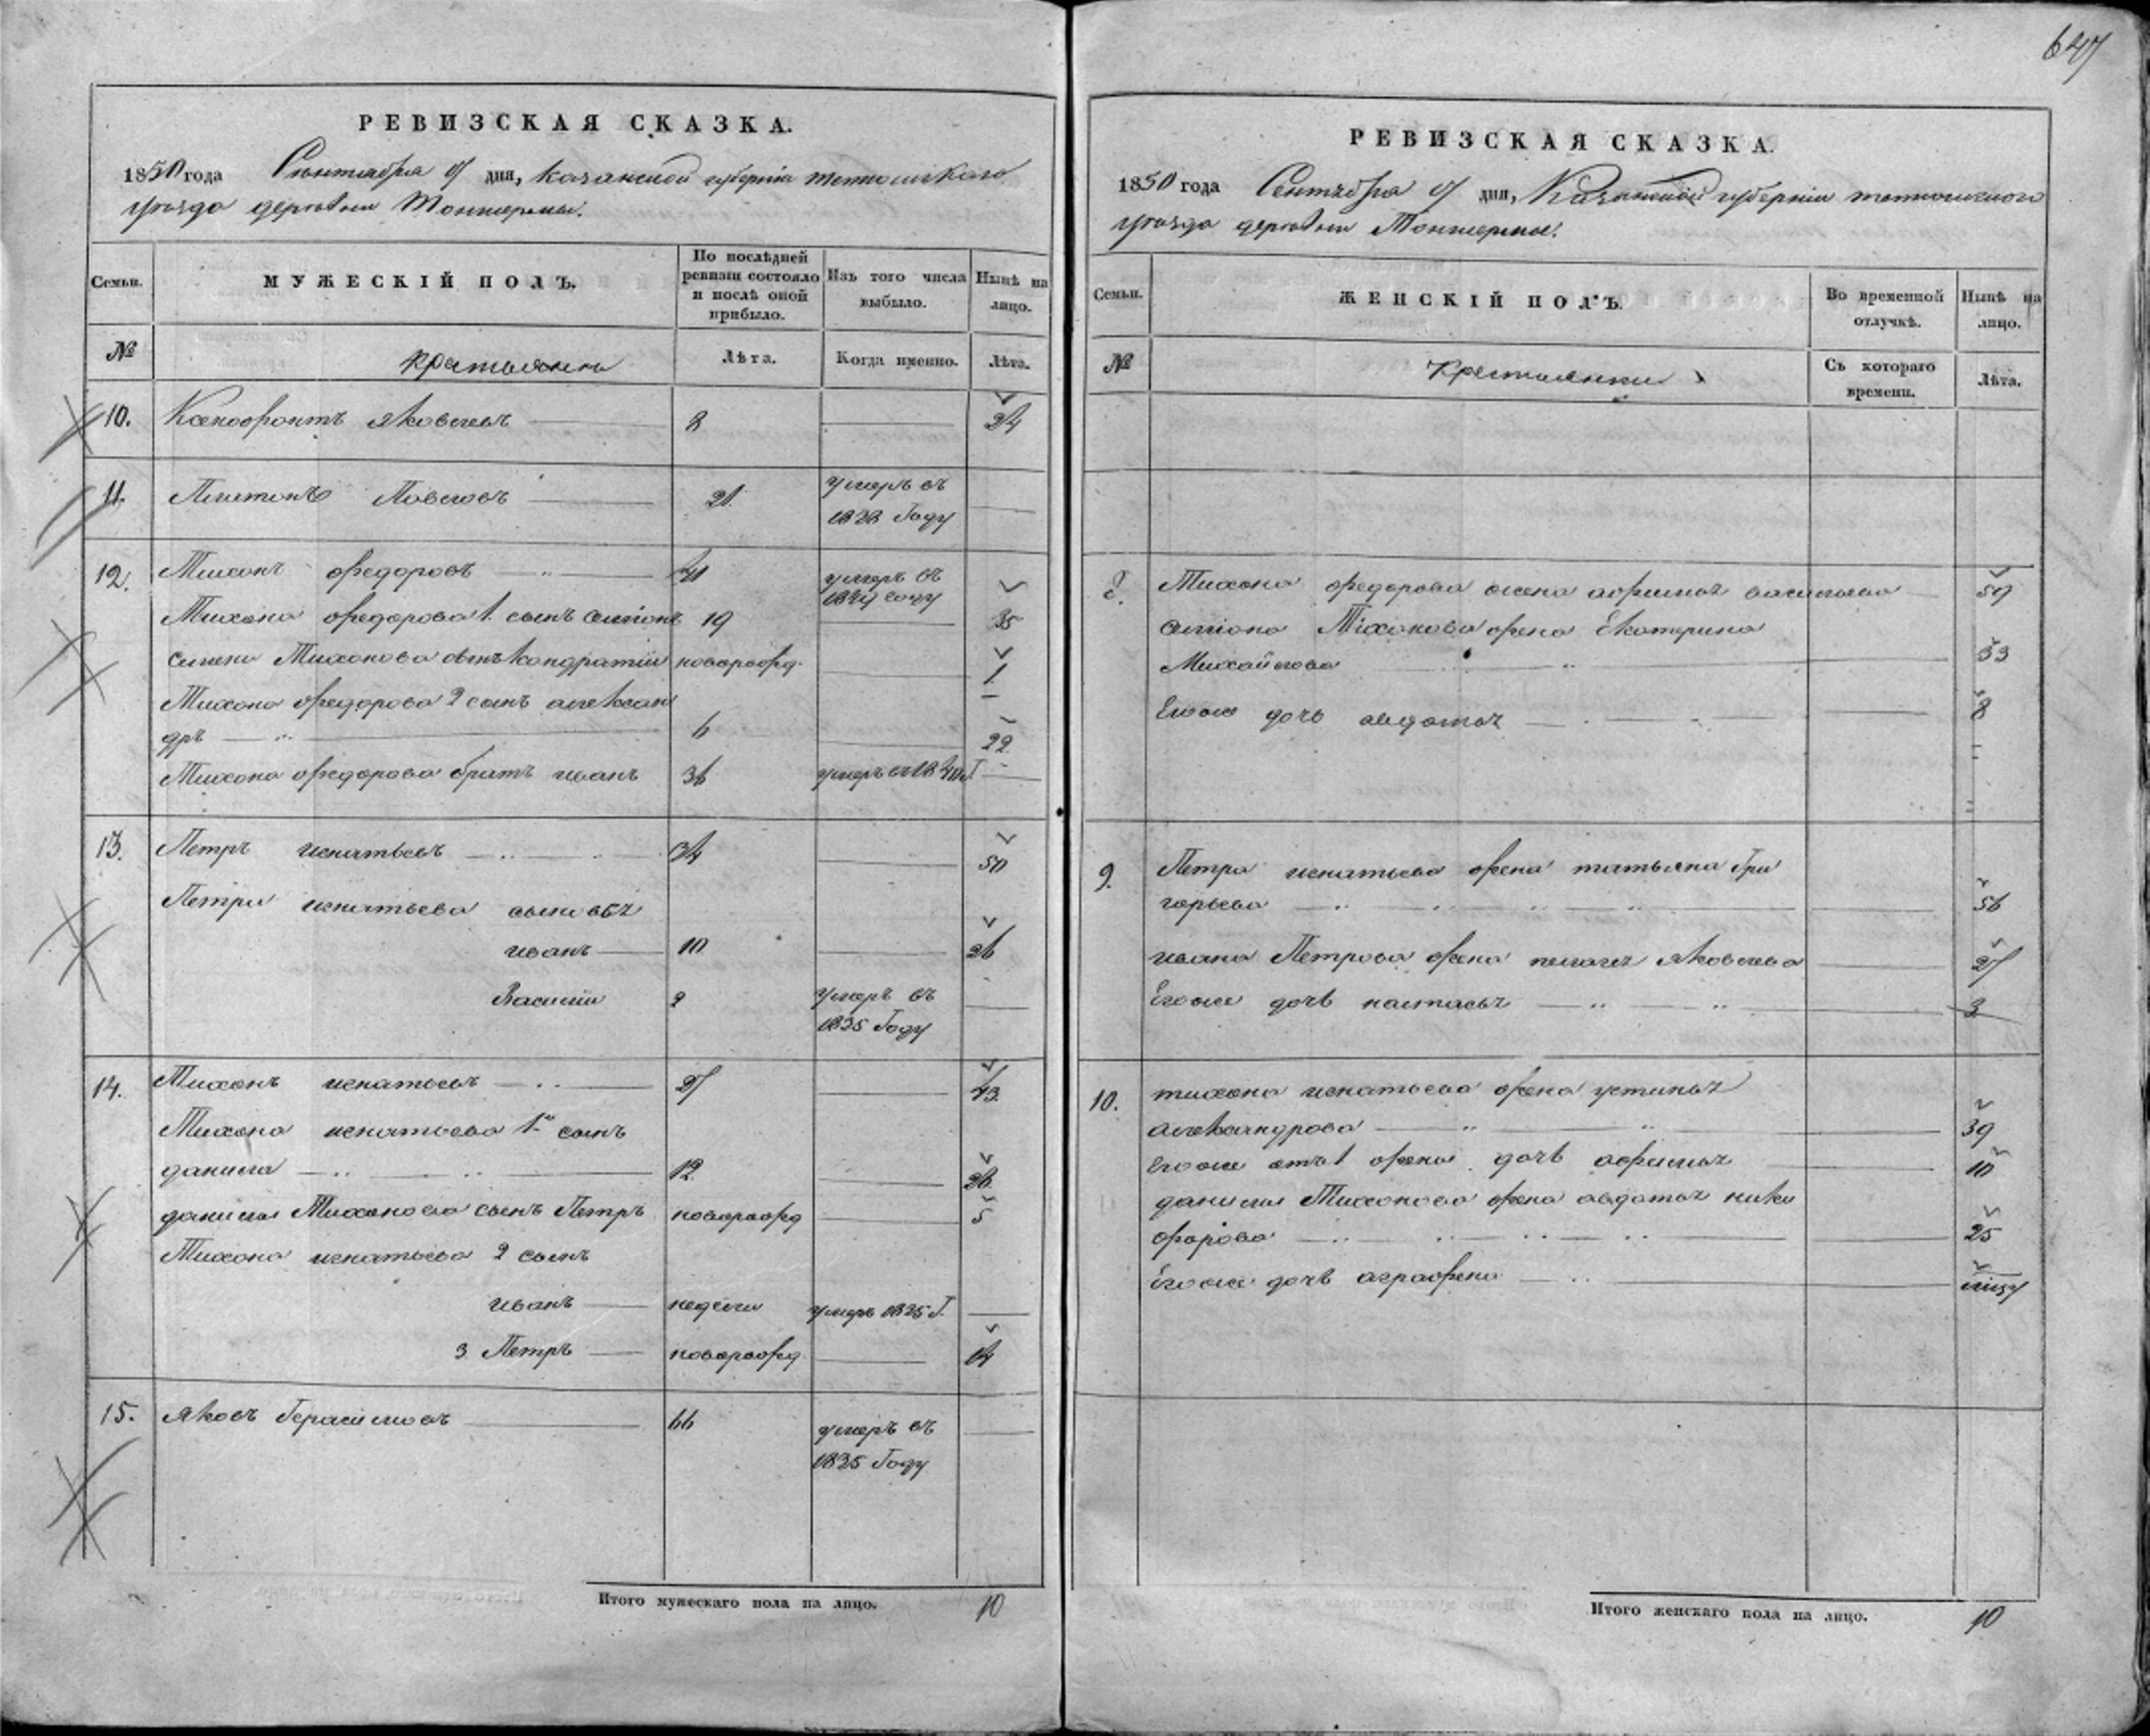 647
РЕВИЗСКАЯ СКАЗКА.
1850 года Сентября 9 дня, Казанской губернии тетюшского
уезда деревни Тоншермы.
Семьи.
МУЖЕСКІЙ ПОЛЪ.
По послѣдней ревизіи состояло и послѣ оной прибыло.
Изъ того числа выбыло.
Нынѣ на лицо.
№
крестьяне
Лѣта.
Когда именно.
Лѣта.
10. Ксенофонтъ яковлевъ 8 24
11. Павловъ 21 умеръ въ
1838 Году
12. Тихонъ федоровъ 41 умеръ въ
Году
Тихона федорова 1. сынъ семіонъ 19 35
Тихонова сынъ кондратіи новорожд. 1
Тихона федорова 2 сынъ алексан
дръ 6 22
Тихона федорова братъ иванъ 36 умеръ въ 1840 Г
13. Петръ игнатьевъ 34 50
Петра игнатьева сыновья
иванъ 10 26
Василіи 2 умеръ въ
1835 Году
14. Тихонъ игнатьевъ 27 43
Тихона игнатьева 1й сынъ
данила 12 28
данилы Тихонова сынъ Петръ новорожд 5
Тихона игнатьева 2 сынъ
иванъ недели умеръ 1835 Г.
3 Петръ новорожд. 14
15. яковъ Герасимовъ 66 умеръ въ
1835 Году
Итого мужескаго пола на лицо. 10
РЕВИЗСКАЯ СКАЗКА.
1850 года Сентября 9 дня, Казанской губерніи тетюшского
уезда деревни Тоншермы.
Семьи.
ЖЕНСКІЙ ПОЛЪ.
Во временной отлучкѣ.
Нынѣ на лицо.
№
крестьянки
Съ котораго времени.
Лѣта.
8. Тихона федорова жена афимья васильева 59
семіона Тихонова жена Екатерина
Михайлова 33
Егоже дочь авдотья 8
9. Петра игнатьева жена татьяна Гри
горьева 56
ивана Петрова жена пелагея яковлева 27
Егоже дочь настасья 3
10. тихона игнатьева жена устинья
александрова 39
Егоже отъ 1 жены дочь афимья 10
данилы Тихонова жена авдотья ники
форова 25
Егоже дочь аграфена
Итого женскаго пола на лицо. 10